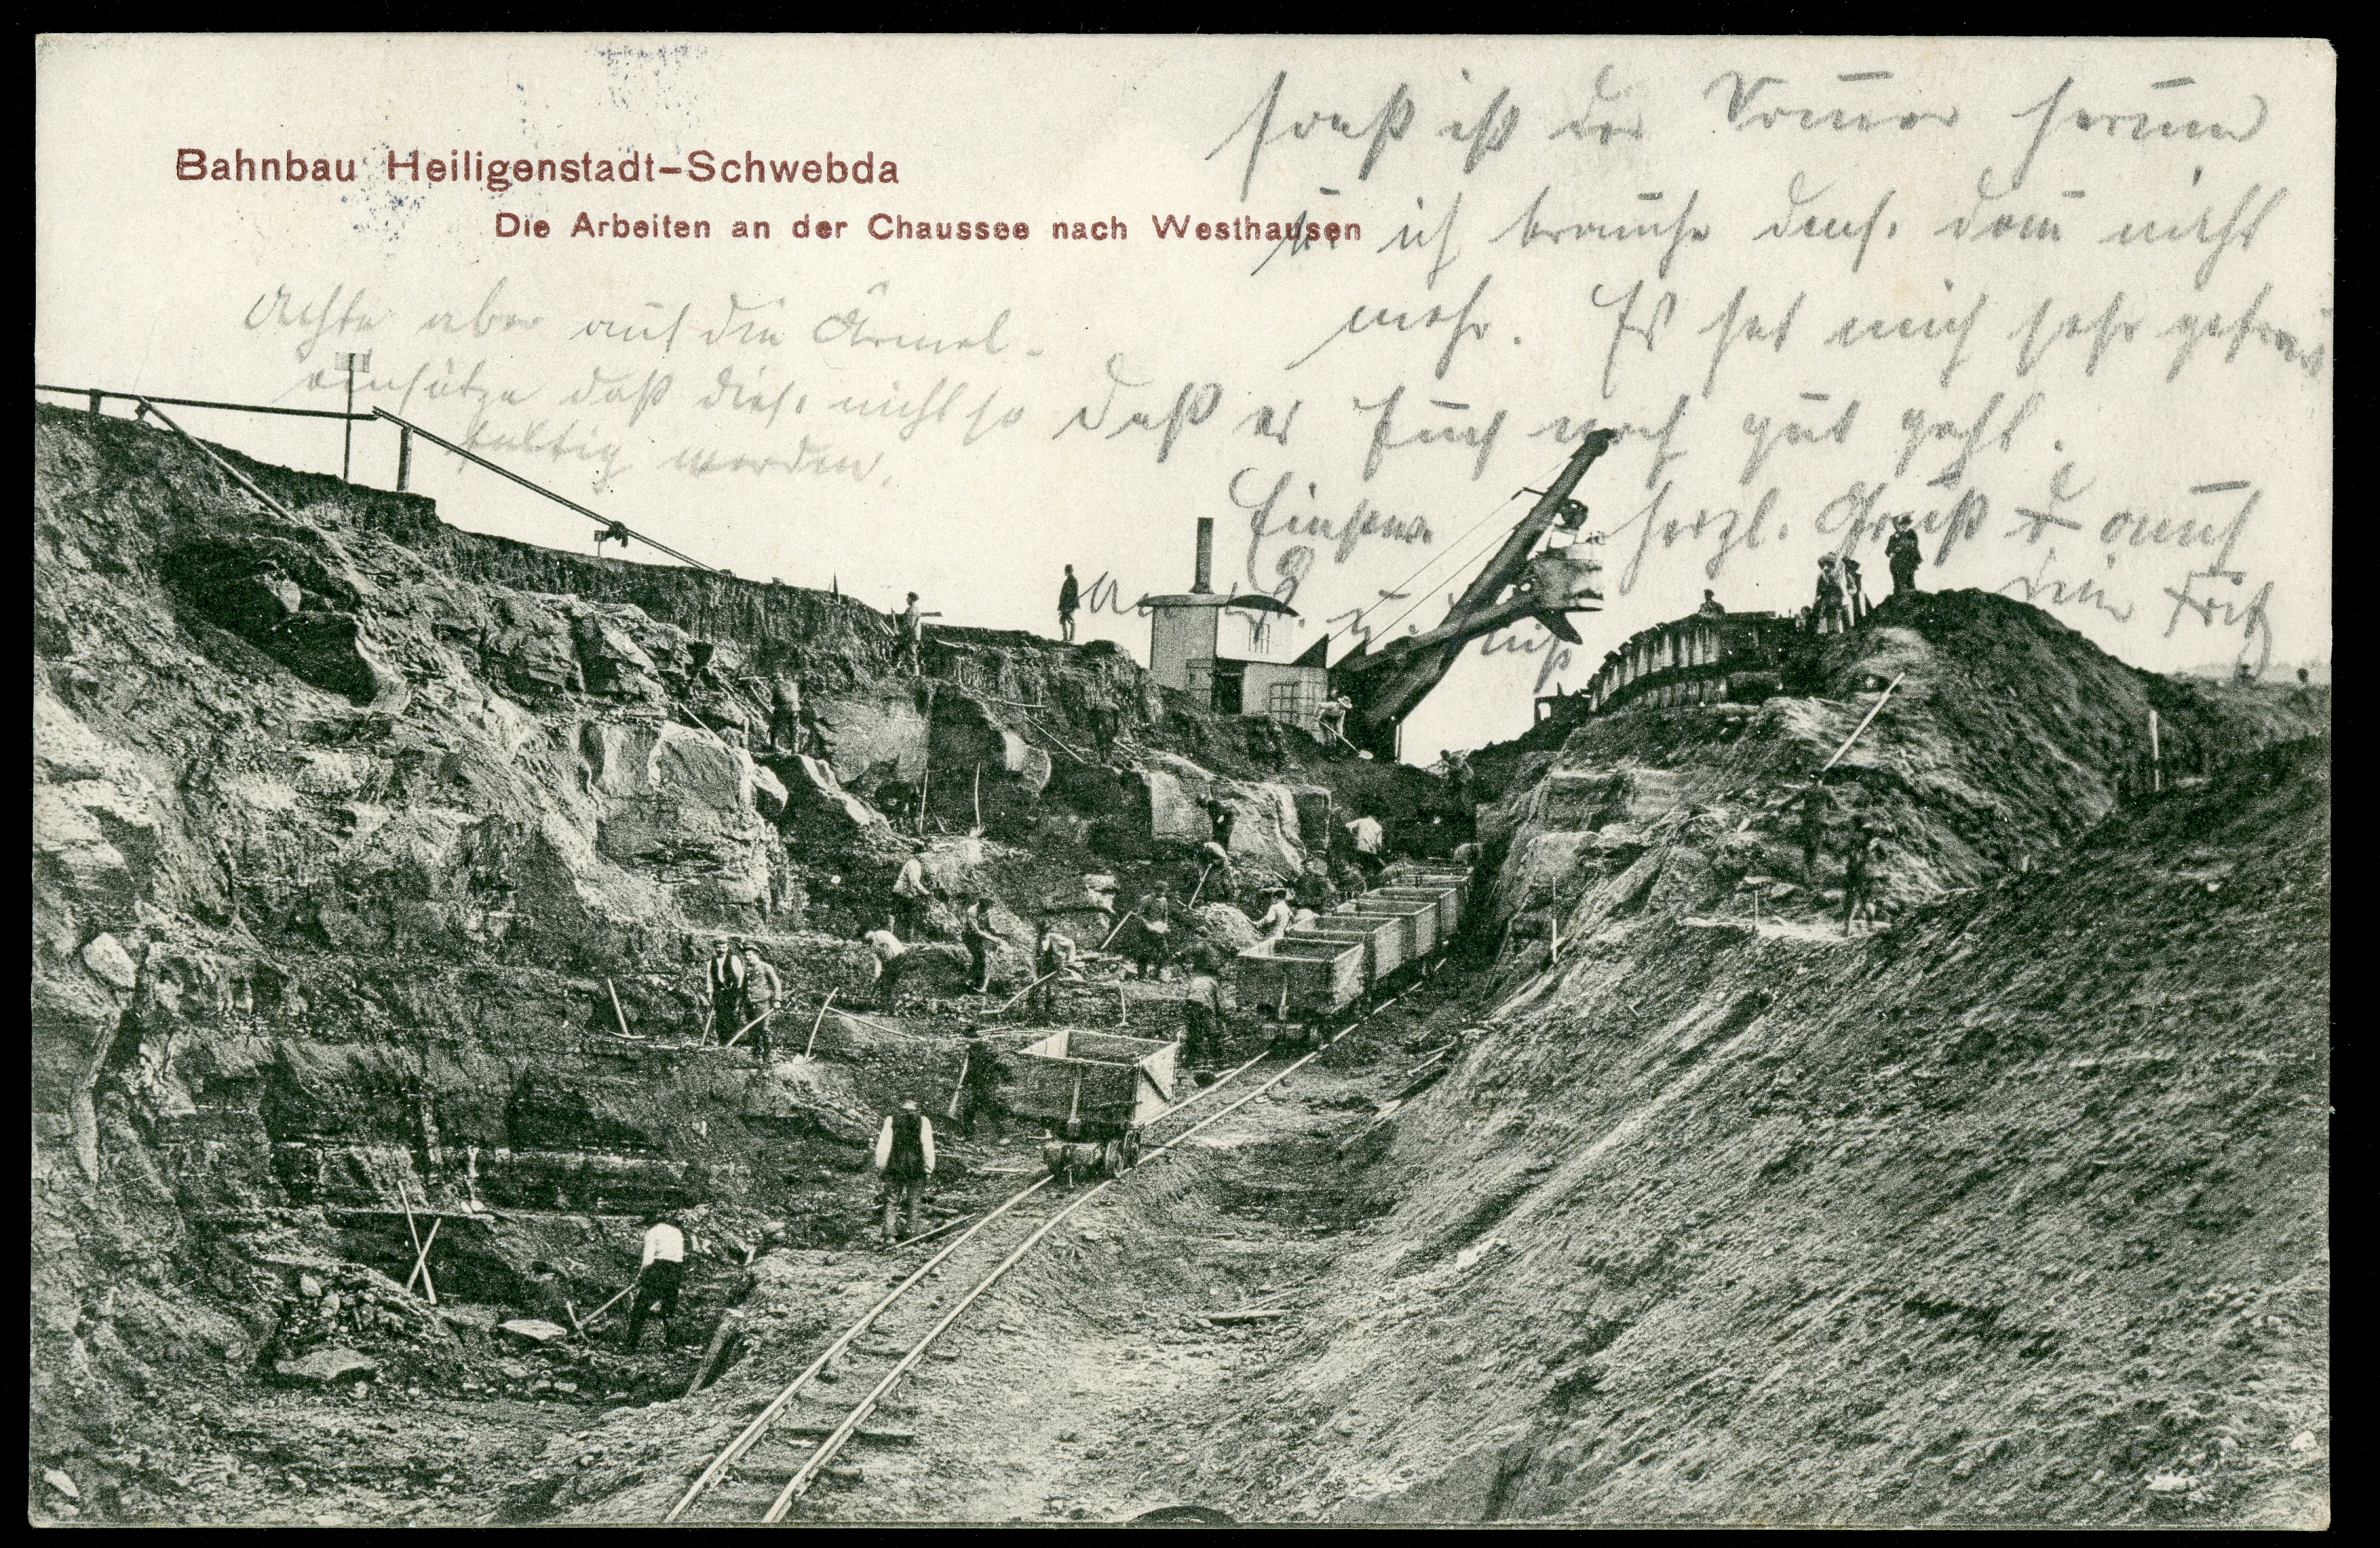 Bahnbau Heiligenstadt-Schwebda
Die Arbeiten an der Chaussee nach Westhausen
sonst ist der Som̄er herum
u. ich brauche dens. dan̄ nicht
mehr. Es hat mich sehr gefreut
daß es Euch noch gut geht.
herzl. Gruß auch
dein Fritz
Achte aber auf die Ärmel-
einsätze daß dies. nicht so
faltig werden.